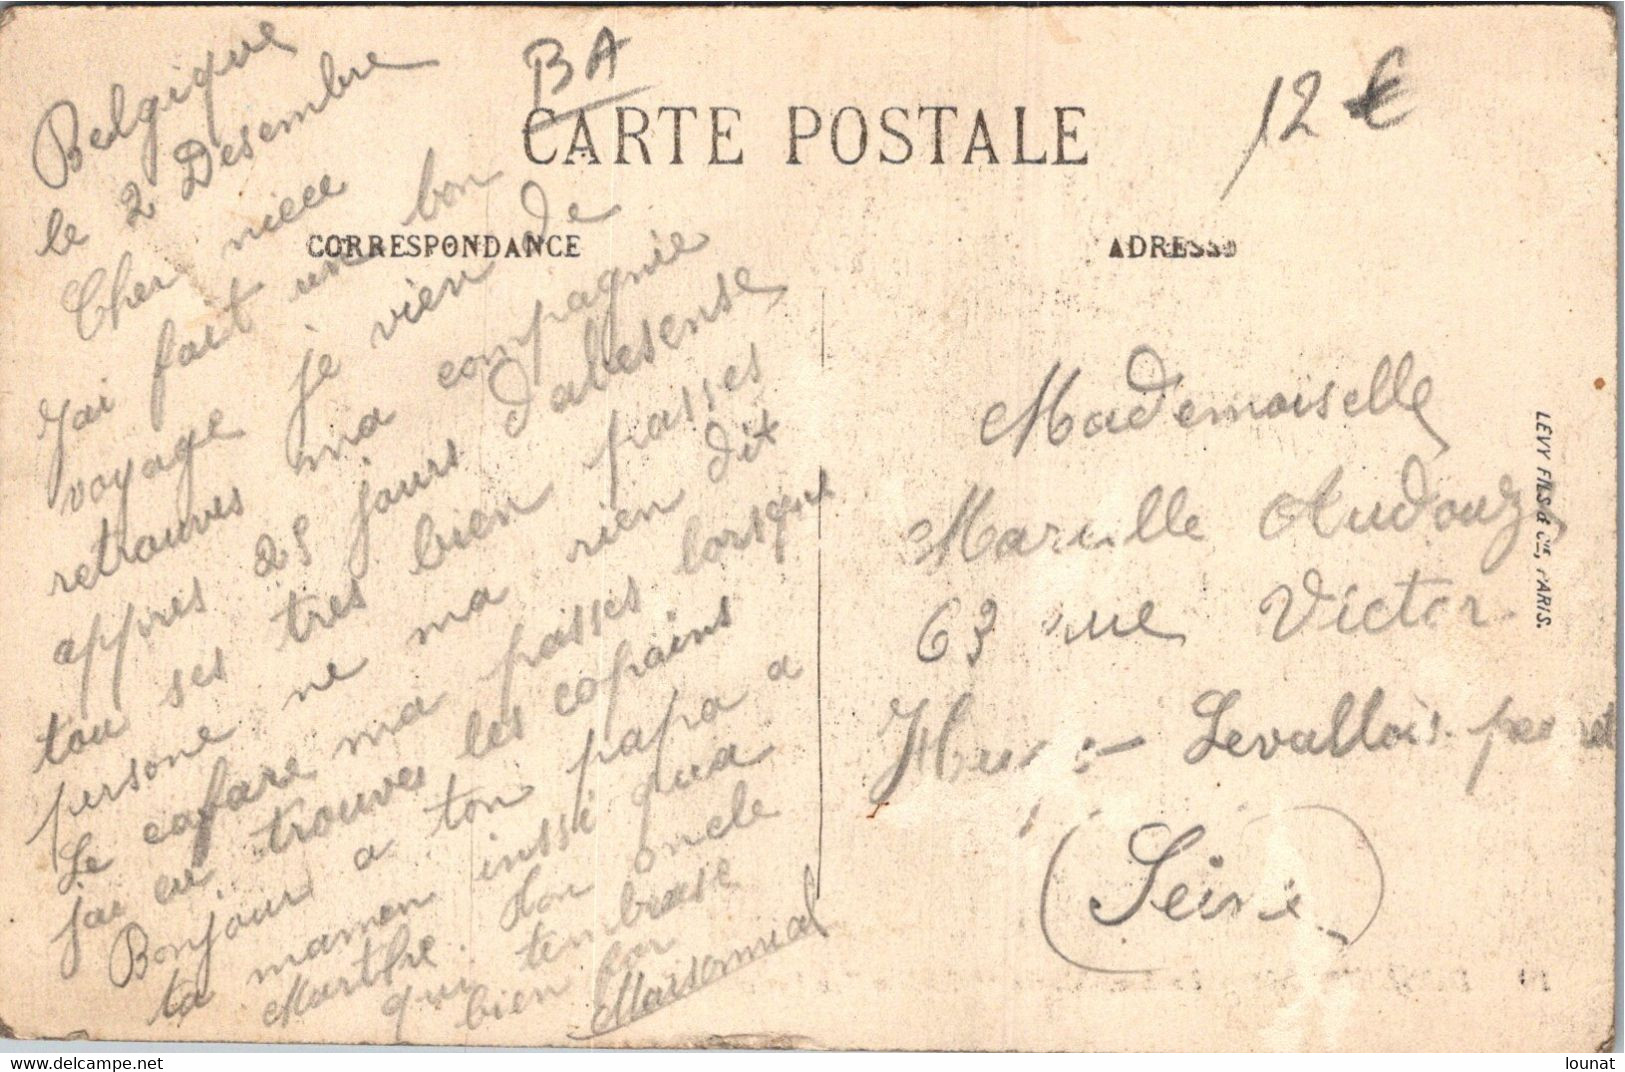 BA
12 €
CARTE POSTALE
CORRESPONDANCE
ADRESSE
Belgique
le 2 Desembre
Cher niece
J'ai fait un bon
voyage je vien de
retrouves ma compagnie
appres 25 jours dabesense
tou ses tres bien passes
persone ne ma rien dit
Le cafare ma passes lorsque
jai eu trouves les copains
Bonjour a ton papa a
ta maman inssi qua
Marthe. Ton oncle
qui tembrase
bien for
Maisonnial
Mademoiselle
Audouz
63 rue Victor
Levallois-perret
(Seine)
LEVY FILS & Cie, PARIS.
lounat